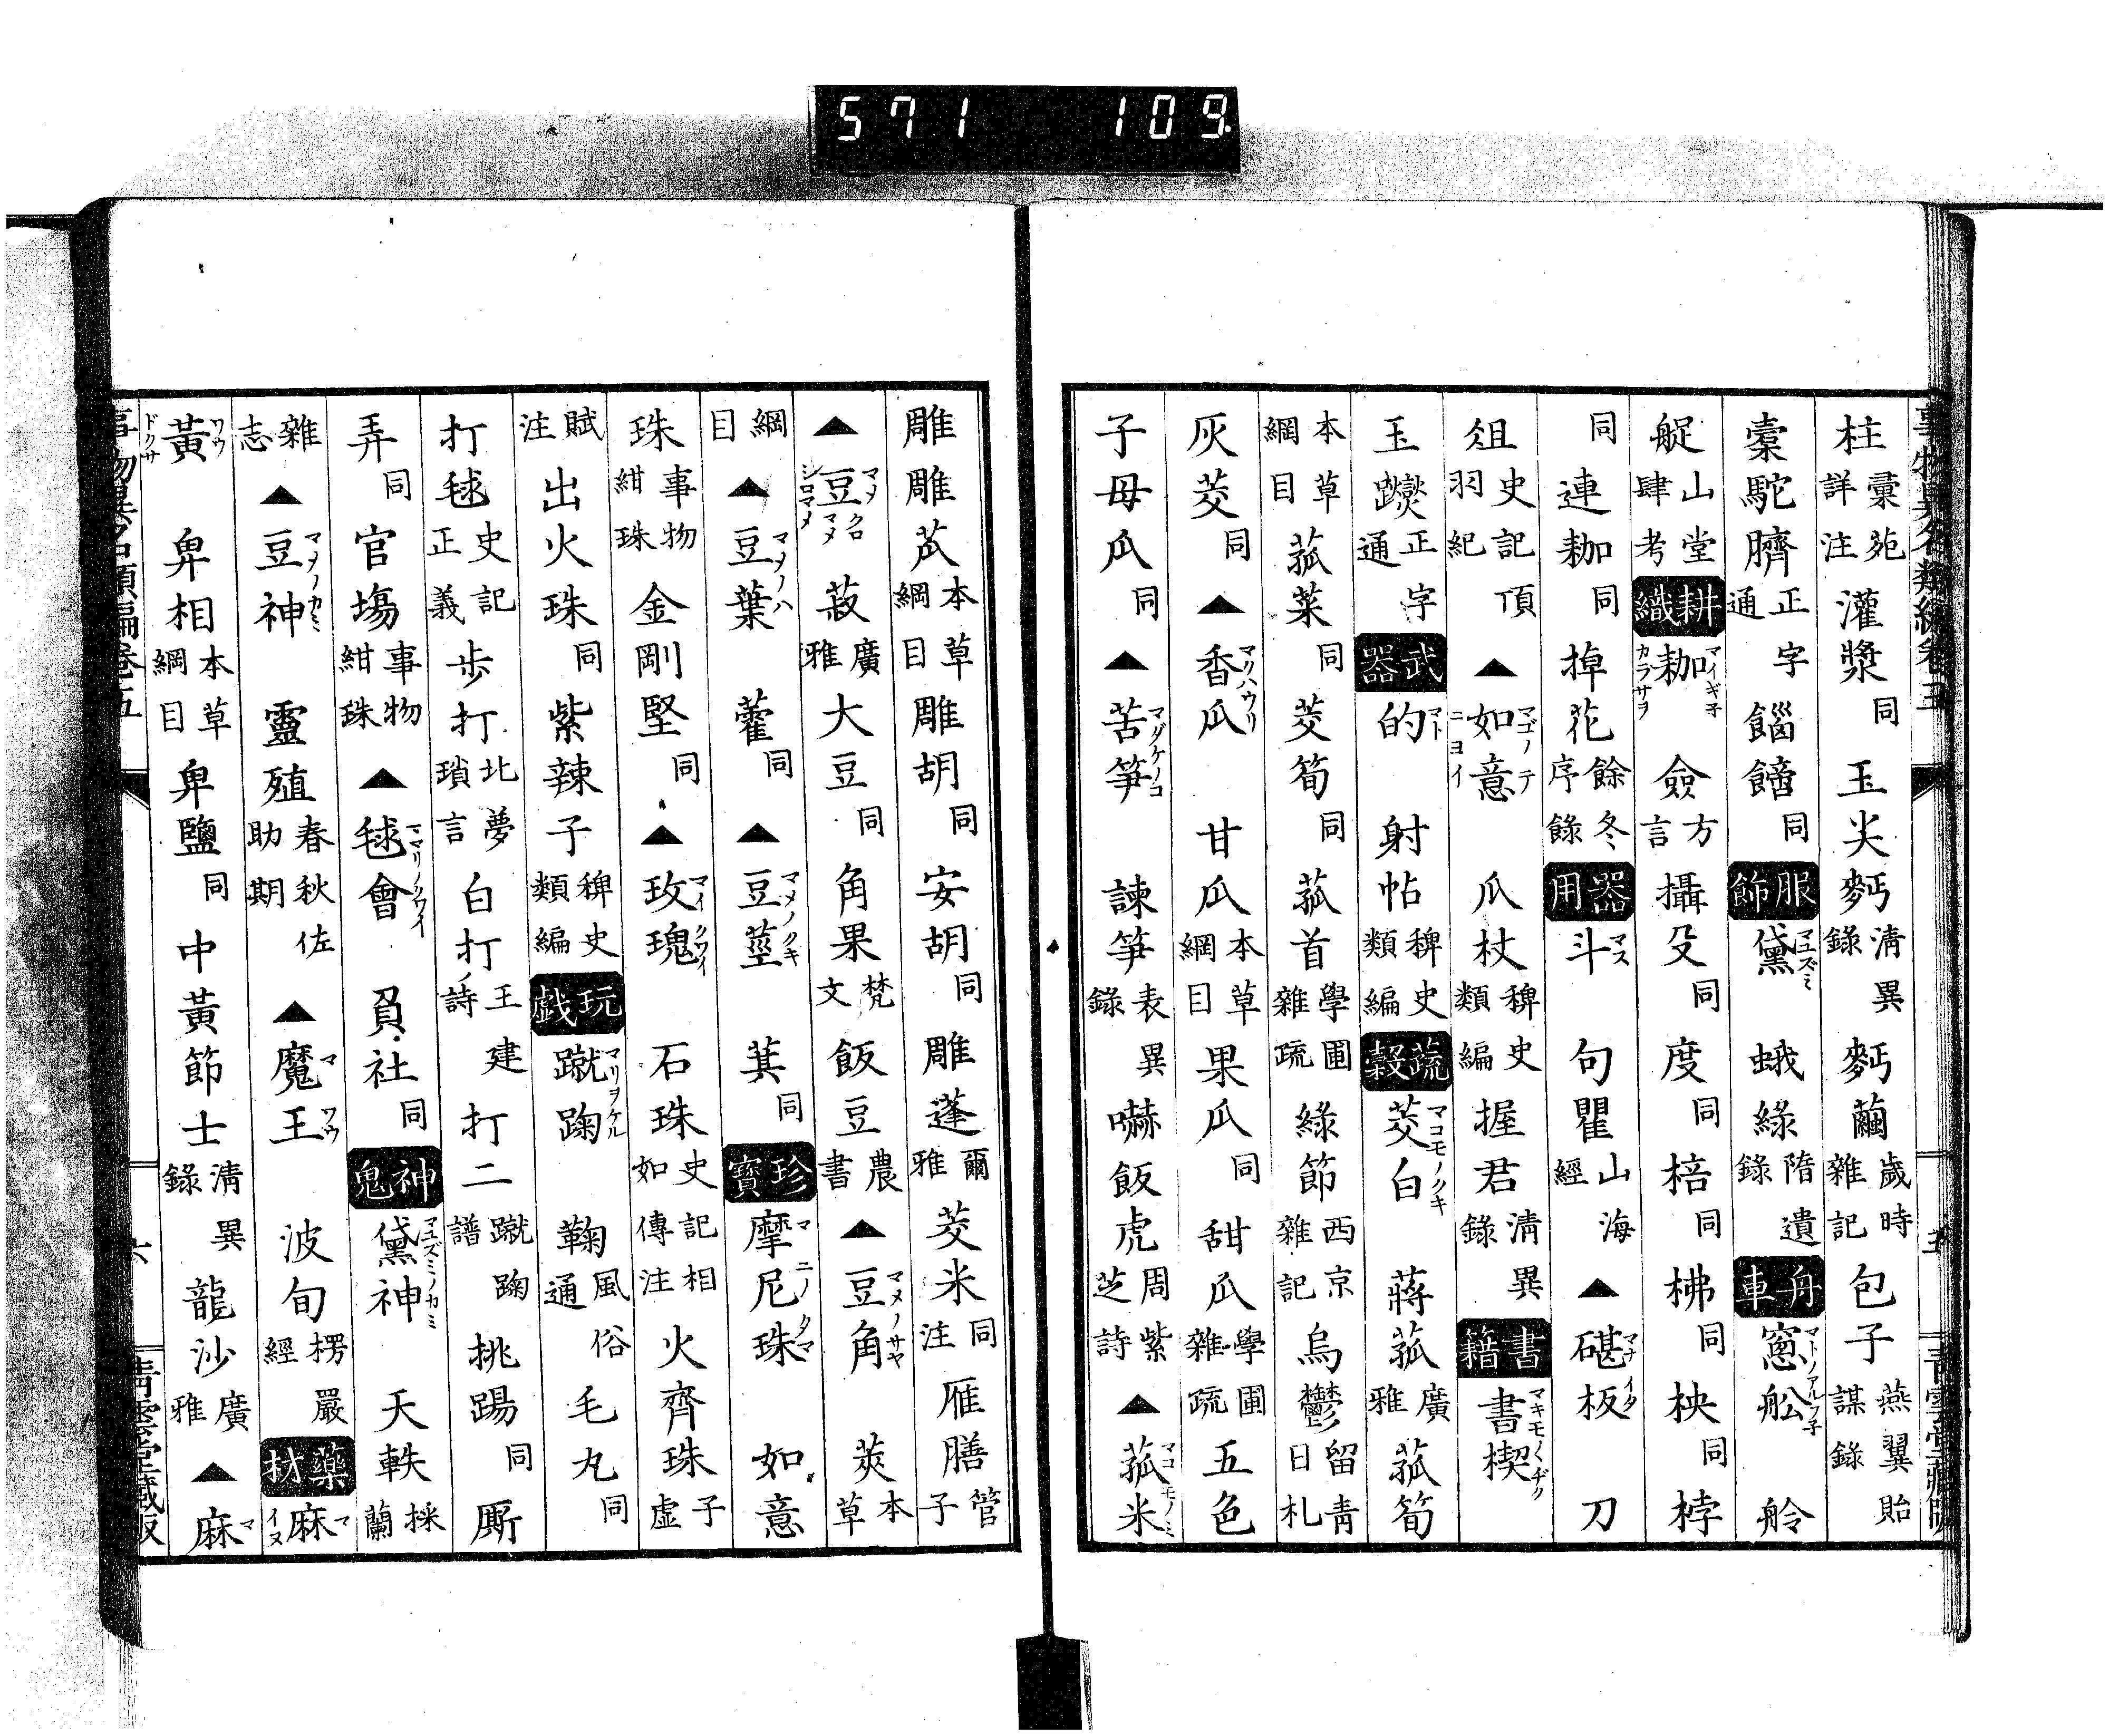 571 109
事物異名類編卷五
柱彙苑詳注灌漿同玉尖麪清異錄麪繭歲時雜記包子燕翼貽謀錄
橐駝臍正字通餾餹同服飾黛マユズミ蛾綠隋遺錄舟車窻舩マドノアルフネ舲
艇山堂肆考耕織耞マイギネカラサヲ僉方言攝殳同度同棓同柫同柍同桲
同連耞同掉花餘冬序錄器用斗マス句瞿山海經▲碪板マナイタ刀
俎史記羽紀頂▲如意マゴノテニヨイ瓜杖稗史類編握君清異錄書籍書楔マキモノヽヂク
玉躞正字通武器的マト射帖稗史類編蔬穀茭白マコモノクキ蔣菰廣雅菰筍
本草綱目菰菜同茭筍同菰首學圃雜疏綠節西京雜記烏鬱留青日札
灰茭同▲香瓜マクハウリ甘瓜本草綱目果瓜同甜瓜學圃雜疏五色
子母瓜同▲苦筍マダケノコ諫筍表異錄嚇飯虎周紫芝詩▲菰米マコモノミ
五
青雲堂藏版
雕雕苽本草綱目雕胡同安胡同雕蓬爾雅茭米同注雁膳管子
▲豆マメクロマメシロマメ菽廣雅大豆同角果梵文飯豆農書▲豆角マメノサヤ莢本草
綱目▲豆葉マメノハ藿同▲豆莖マメノクキ萁同珍寶摩尼珠マニノタマ如意
珠事物紺珠金剛堅同▲玫瑰マイクワイ石珠史記相如傳注火齊珠子虛
賦注出火珠同紫辣子稗史類編玩戲蹴踘マリヲケル鞠風俗通毛丸同
打毬史記正義步打北夢瑣言白打王建ノ詩打二蹴踘譜挑踢同厮
弄同官塲事物紺珠▲毬會マリノクワイ員社同神鬼黛神マユズミノカミ天軼採蘭
雜志▲豆神マメノカミ靈殖春秋佐助期▲魔王マワウ波旬楞嚴經藥材麻マイヌ
黃ワウドクサ卑相本草綱目卑鹽同中黃節士清異錄龍沙廣雅▲麻マ
事物異名類編卷五
六
青雲堂藏版